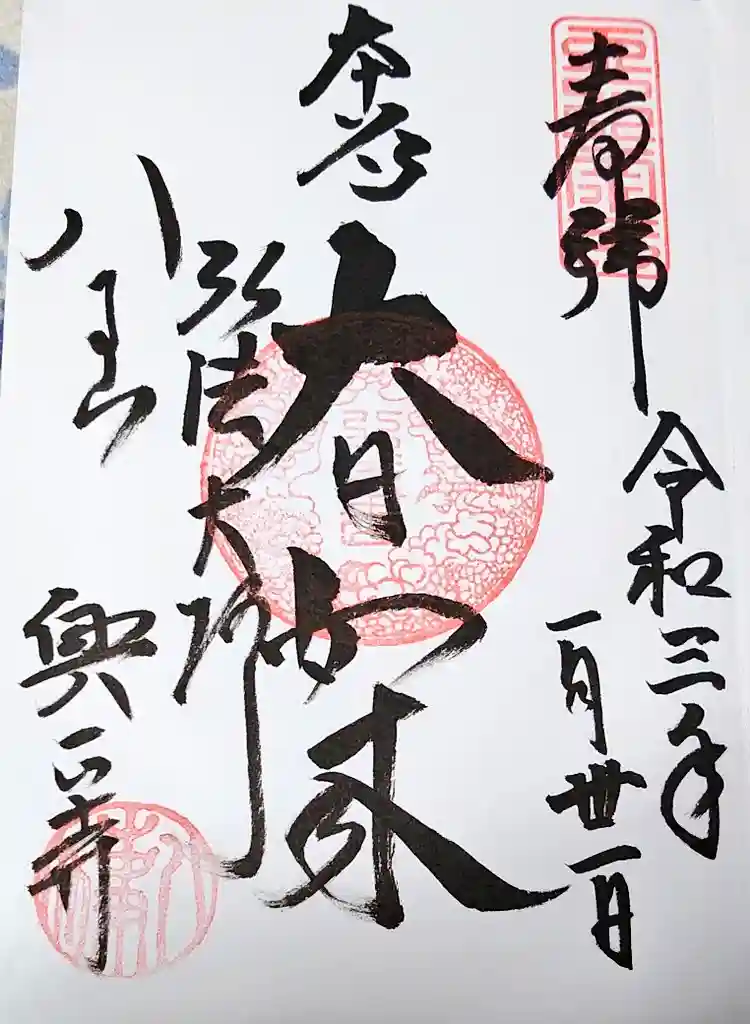 奉拝
令和三年
一月卅一日
本尊
大日如来
弘法大師
八事山
興正寺